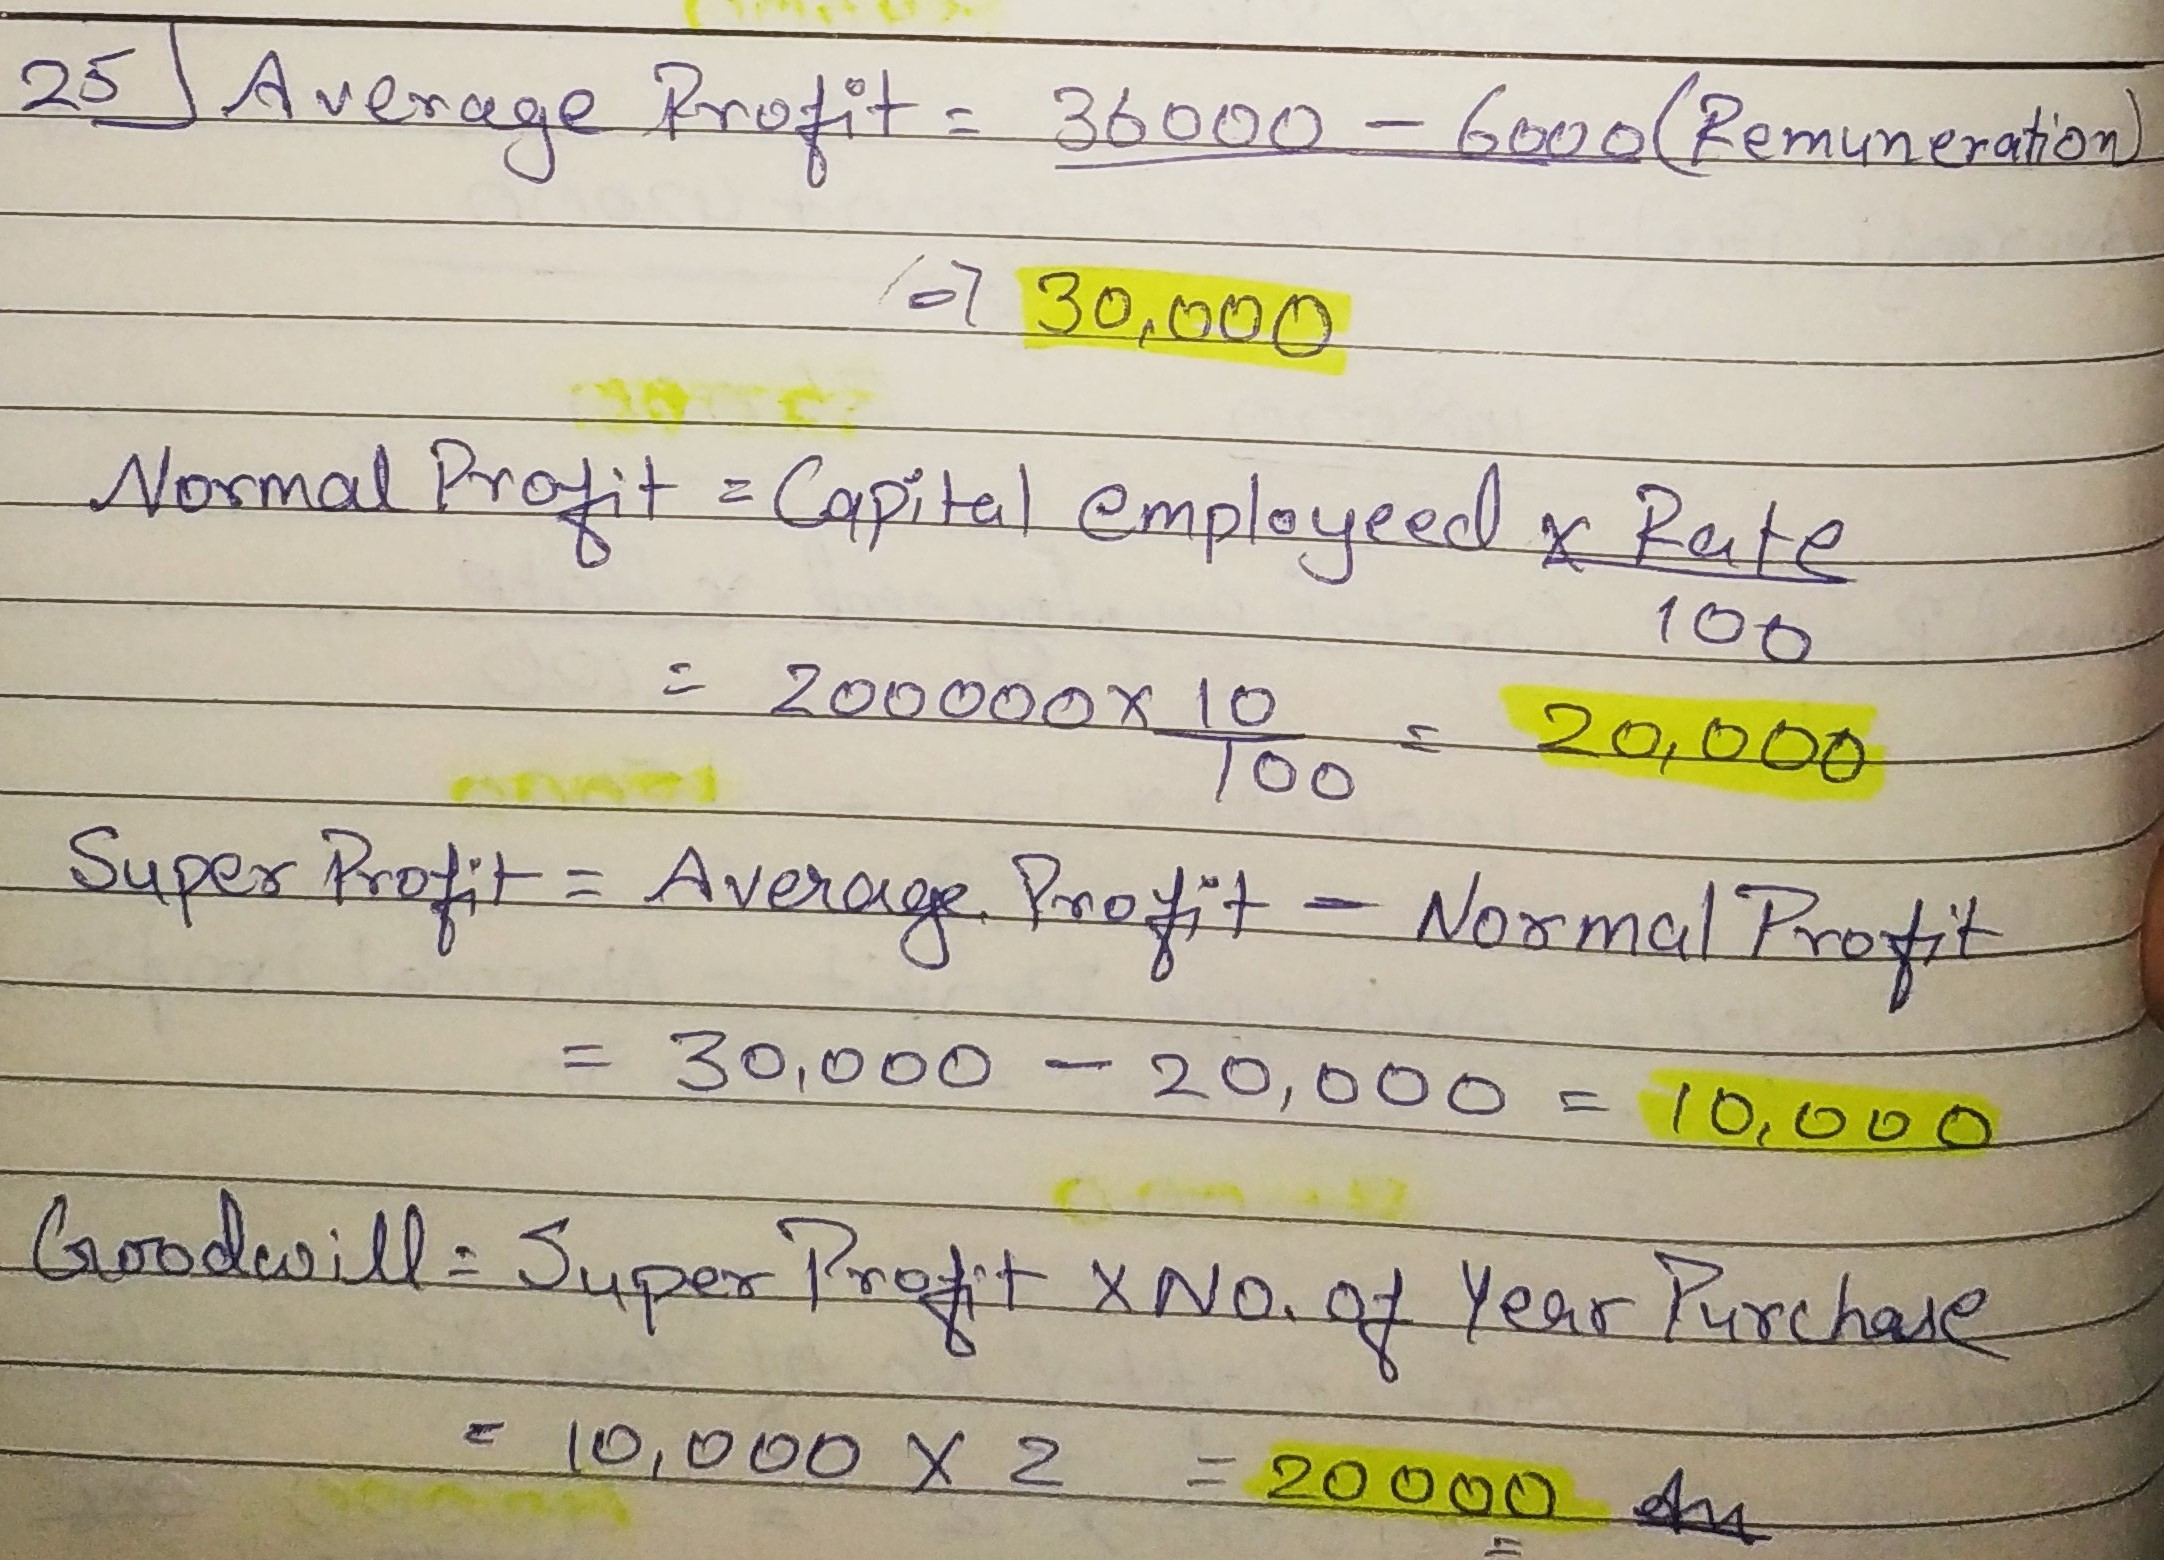 25] Average Profit = 36000 - 6000 (Remuneration)
=> 30,000
Normal Profit = Capital employeed x Rate
100
= 200000 x 10 = 20,000
100
Super Profit = Average Profit - Normal Profit
= 30,000 - 20,000 = 10,000
Goodwill = Super Profit x No. of Year Purchase
= 10,000 x 2 = 20000 Ans